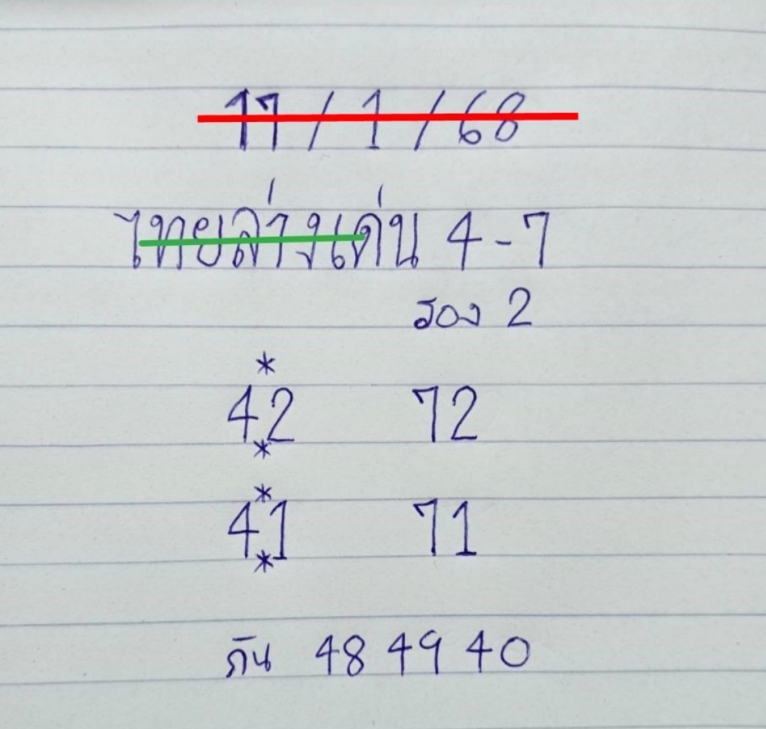 17/1/68
ไทยล่างเด่น 4-7
รอง 2
*
42 72
*
*
41 71
*
กัน 48 49 40